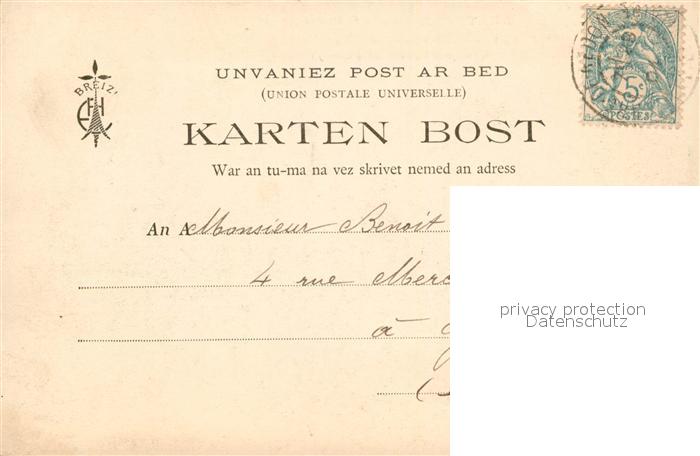 UNVANIEZ POST AR BED
BREIZ'
(UNION POSTALE UNIVERSELLE)
KARTEN BOST
War an tu-ma na vez skrivet nemed an adress
5c
POSTES
REDON
An A Monsieur Benoit
4 rue Merc
à
privacy protection
Datenschutz